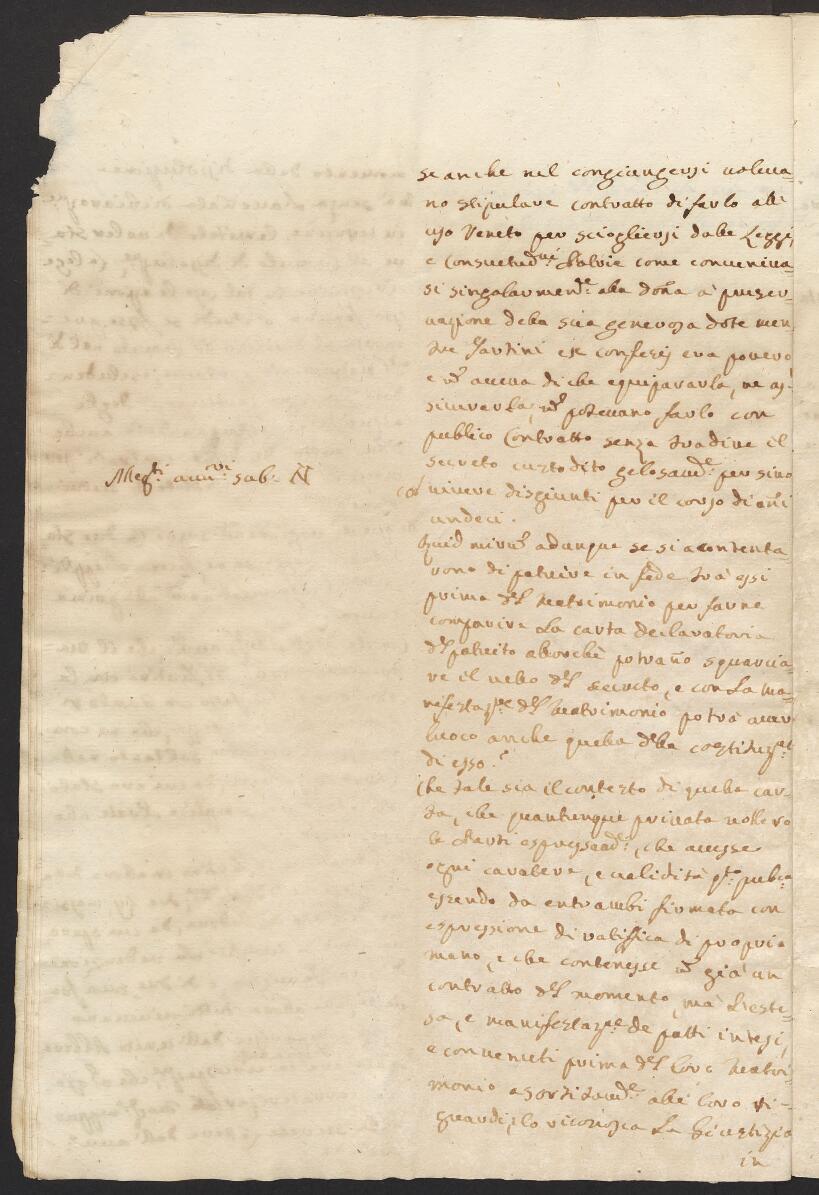 se anche nel congiungersi voleva-
no stipulare contratto di farlo all'
uso Veneto per sciogliersi dalle Leggi,
e Consuetud.ni Patrie come conveniva-
si singolarmen.te alla doña à preser-
vazione della sua generosa dote men-
tre Tartini
e nõ aveva di che equipararla, ne as-
sicurarla, nõ potevano farlo con
publico Contratto senza tradire il
secreto custodito gelosam.te per sino
col vivere disgiunti per il corso di añi
undeci.
Alleg.ti ann.vi sub: N
Quid mirũ adunque se si acontenta-
rono di patuire in fede trà essi
prima del Matrimonio per farne
comparire la carta declaratoria
del patuito allorchè potraño squarcia-
re il vello del secreto, e con la ma-
nifestaz.ne del Matrimonio potrà aver
luoco anche quella della costituz.ne
di esso?
Che tale sia il contesto di quella car-
ta, che quantunque privata vollero
le Parti espressam.te, che avesse
ogni carattere, e validità q.to publica
essendo da entrambi firmata con
espressione di ratiffica di propria
mano, e che contenesse nõ già un
contratto del momento, mà l'este-
sa, e manifestaz.ne de patti intesi,
e convenuti prima del loro Matri-
monio alli loro ri-
guardi, lo riconosca la Giustizia
in